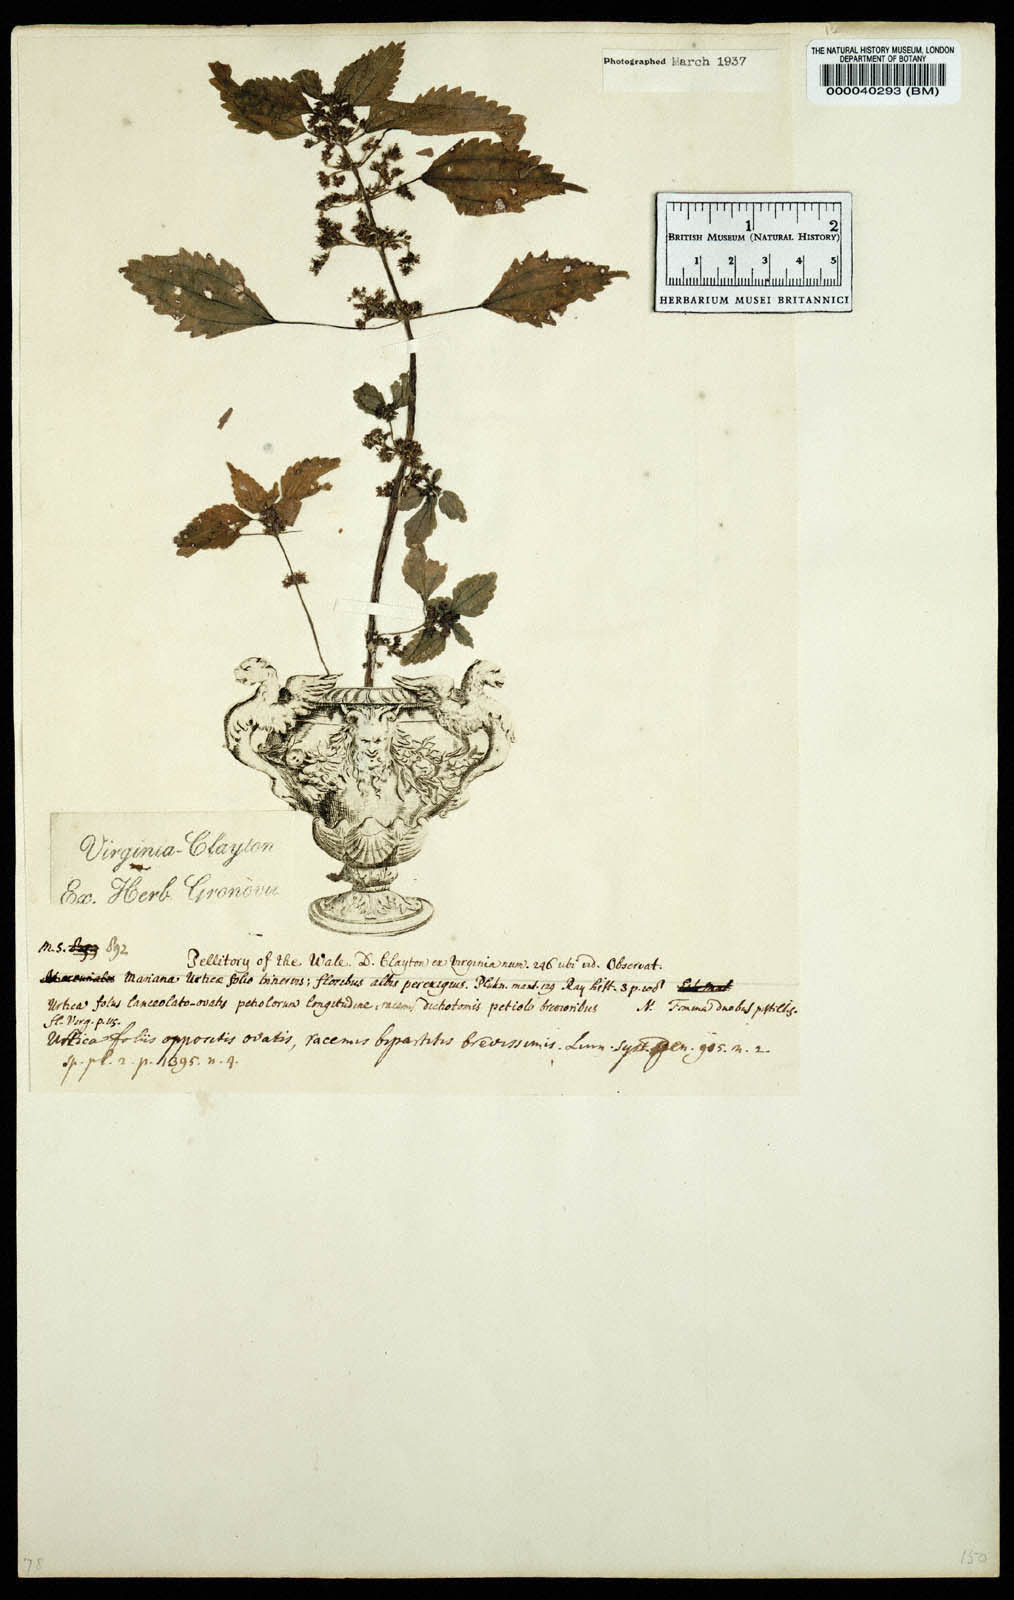 Photographed March 1937
THE NATURAL HISTORY MUSEUM, LONDON
DEPARTMENT OF BOTANY
000040293 (BM)
1 2
BRITISH MUSEUM (NATURAL HISTORY)
1 2 3 4 5
HERBARIUM MUSEI BRITANNICI
Virginia-Clayton
Ex. Herb. Gronovii
M.S. 892
Pellitory of the Wale. D. Clayton ex Virginia num. 246 ubi vid. Observat.
Mariana Urticæ folio binervis; floribus albis perexiguis. Plukn. mant. 129 Ray hist. 3 p. 108
Urtica foliis lanceolato-ovatis petiolorum longitudine, racemis dichotomis petiolo brevioribus N. Femina duobus pistillis.
fl. Virg. p. 115.
Urtica foliis oppositis ovatis, racemis bipartitis brevissimis. Linn. Syst. 905. n. 2
Sp. pl. 2. p. 1395. n. 4.
78
150